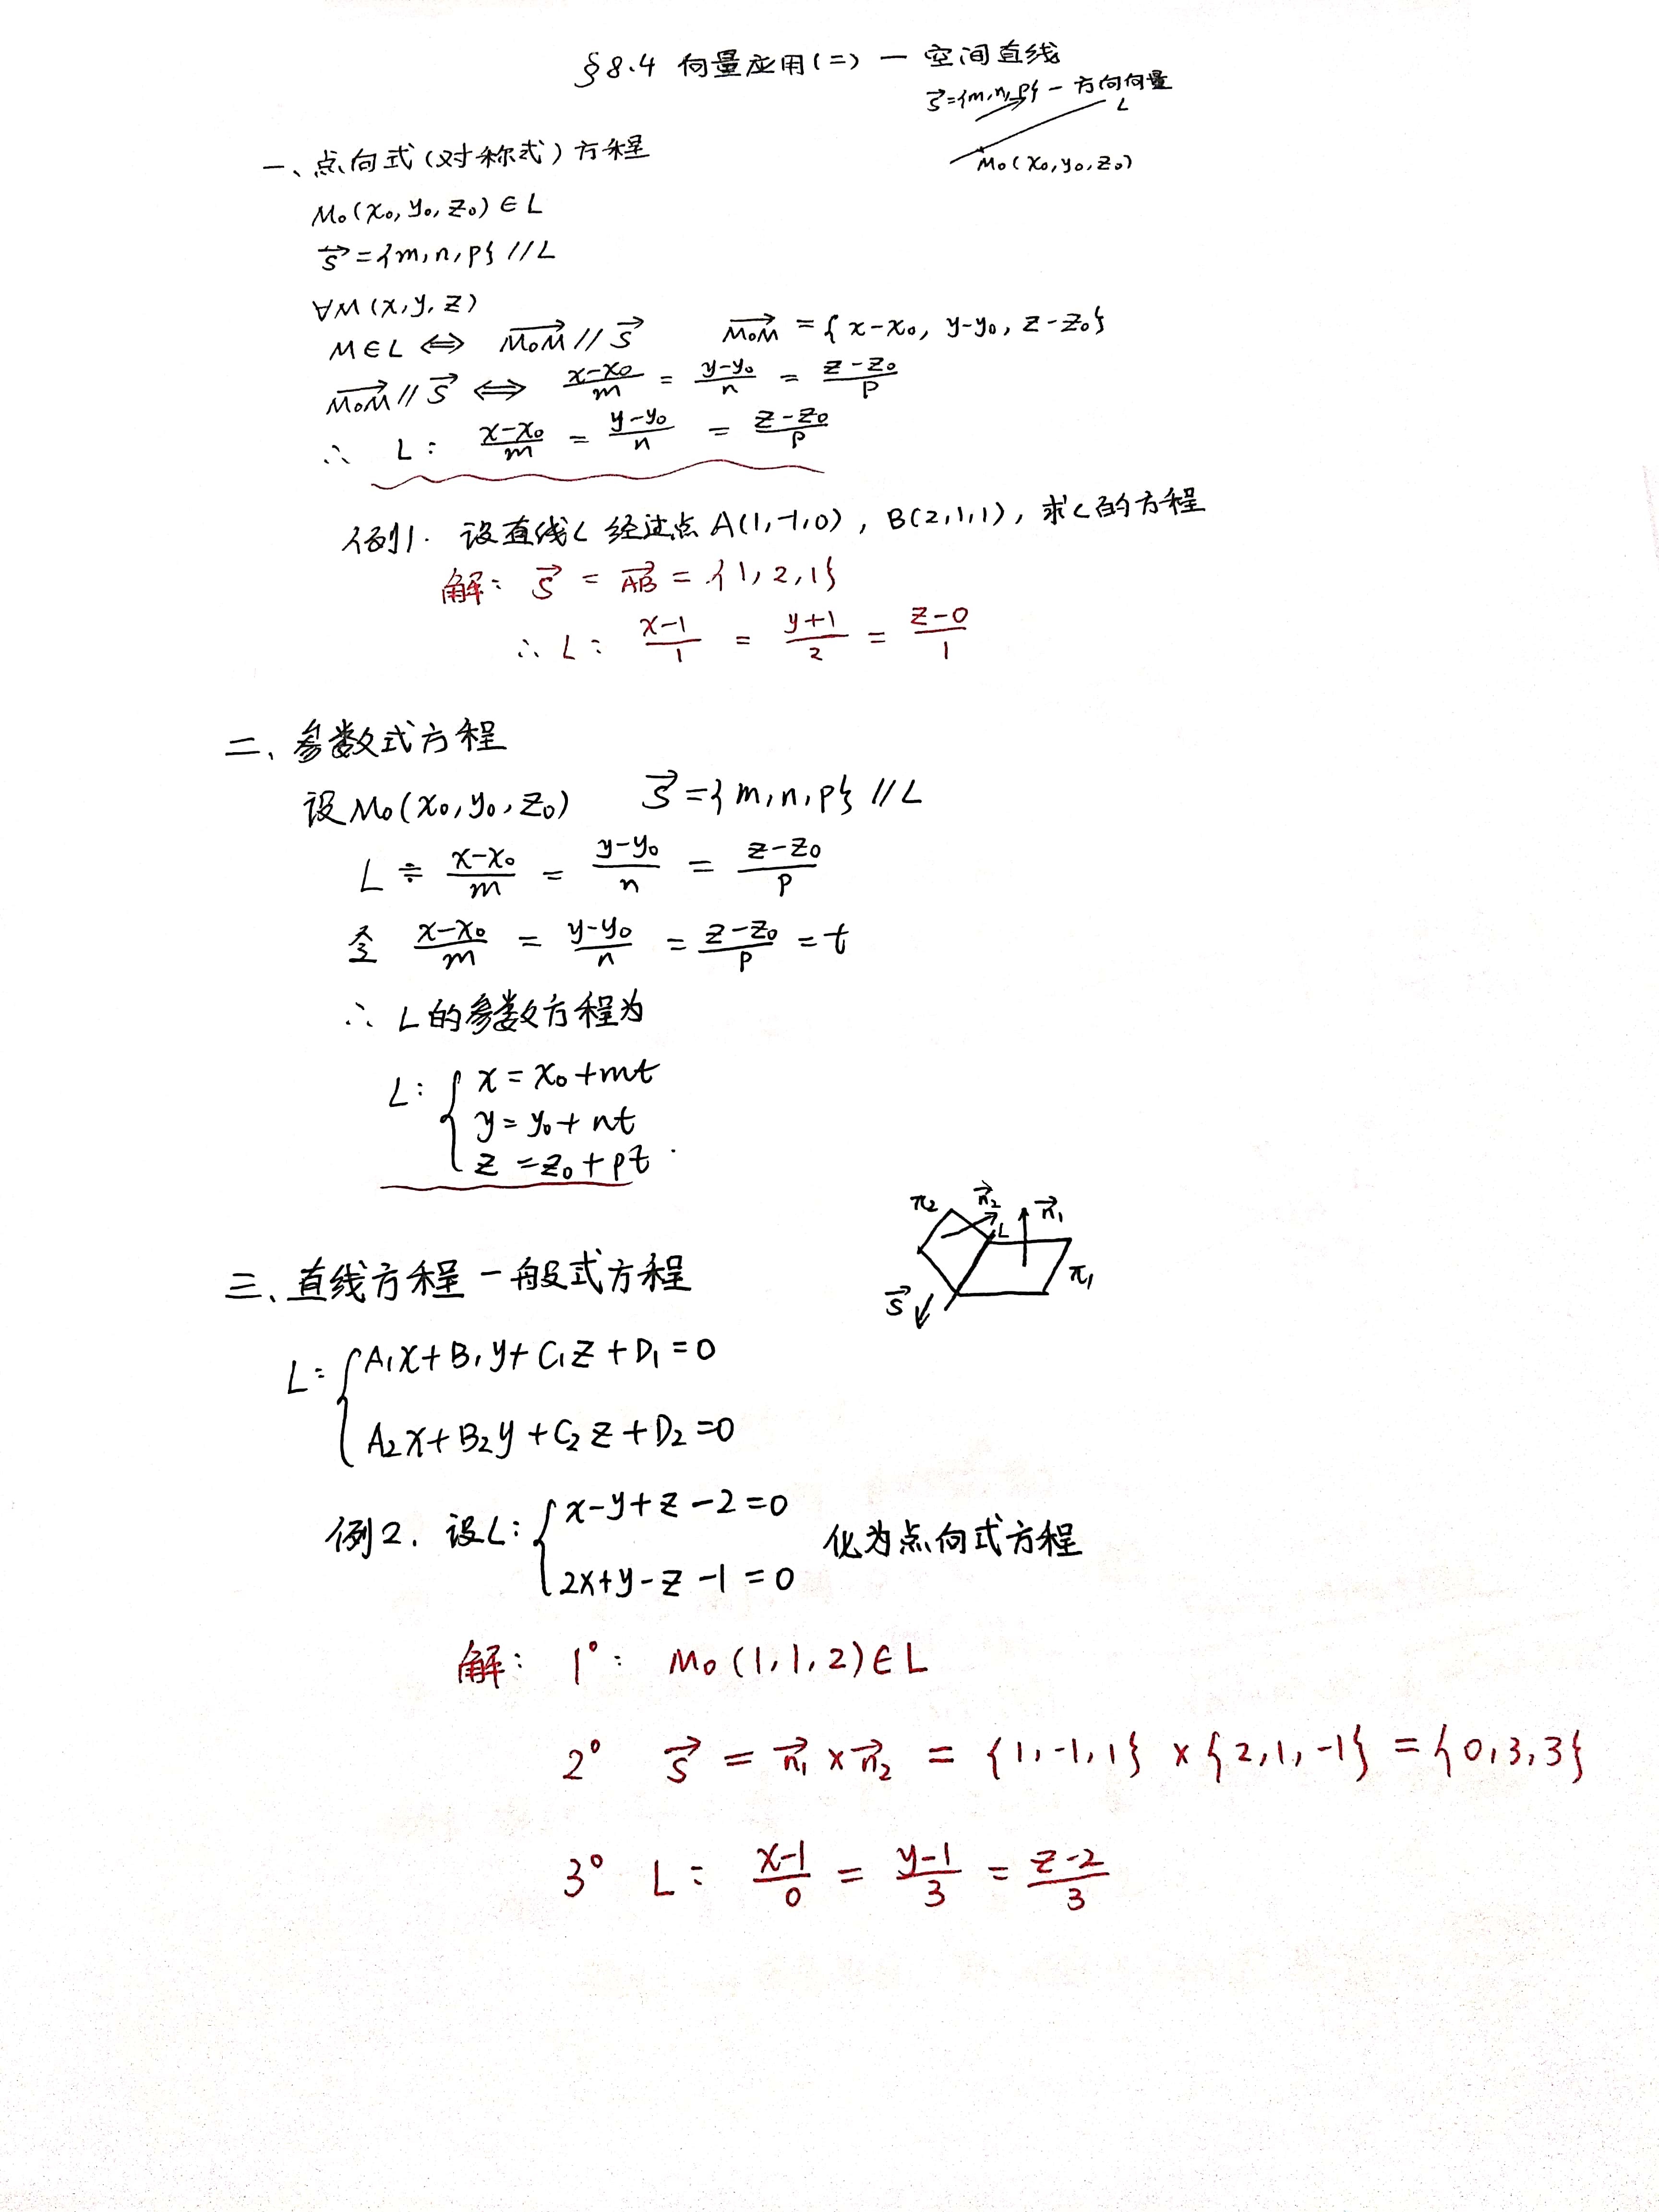 §8.4 向量应用(二) — 空间直线
S⃗={m,n,p} — 方向向量
L
M₀(x₀,y₀,z₀)
一、点向式(对称式)方程
M₀(x₀,y₀,z₀)∈L
S⃗={m,n,p}//L
∀M(x,y,z)
M∈L ⟺ M₀M⃗ // S⃗   M₀M⃗ = {x-x₀, y-y₀, z-z₀}
M₀M⃗ // S⃗ ⟺ (x-x₀)/m = (y-y₀)/n = (z-z₀)/p
∴ L: (x-x₀)/m = (y-y₀)/n = (z-z₀)/p
例1. 设直线L经过点A(1,-1,0), B(2,1,1), 求L的方程
解: S⃗ = AB⃗ = {1,2,1}
∴ L: (x-1)/1 = (y+1)/2 = (z-0)/1
二、参数式方程
设M₀(x₀,y₀,z₀)   S⃗={m,n,p}//L
L ÷ (x-x₀)/m = (y-y₀)/n = (z-z₀)/p
令 (x-x₀)/m = (y-y₀)/n = (z-z₀)/p = t
∴ L的参数方程为
L: { x = x₀+mt
y = y₀+nt
z = z₀+pt.
π₂ n⃗₂ L n⃗₁
S⃗ π₁
三、直线方程一般式方程
L: { A₁x+B₁y+C₁z+D₁=0
A₂x+B₂y+C₂z+D₂=0
例2. 设L: { x-y+z-2=0
2x+y-z-1=0 化为点向式方程
解: 1°: M₀(1,1,2)∈L
2° S⃗ = n⃗₁×n⃗₂ = {1,-1,1}×{2,1,-1} = {0,3,3}
3° L: (x-1)/0 = (y-1)/3 = (z-2)/3